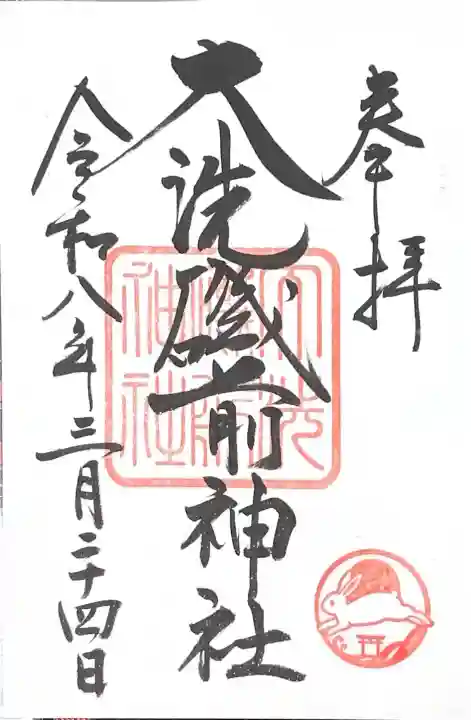 奉拝
大洗磯前神社
令和八年三月二十四日
大洗
磯前
神社